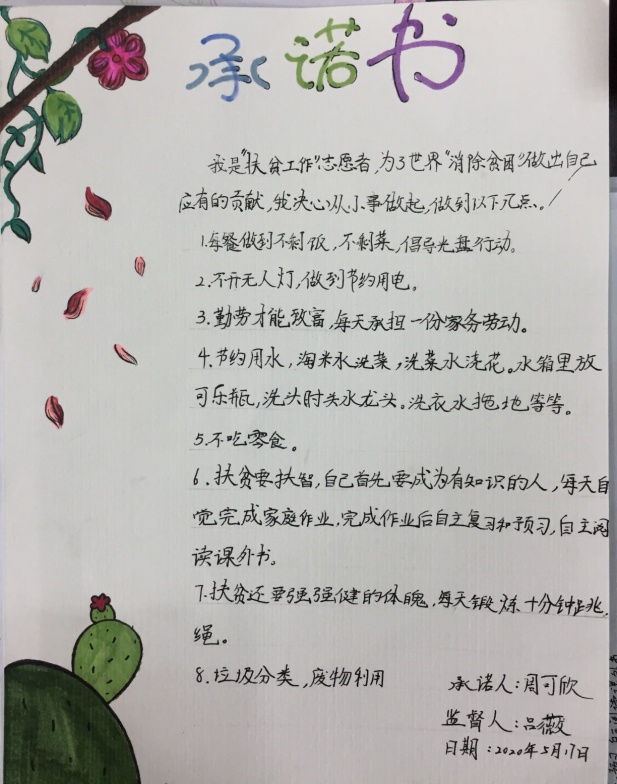 承诺书
我是"扶贫工作"志愿者,为了世界"消除贫困"做出自己
应有的贡献,我决心从小事做起,做到以下几点。
1.每餐做到不剩饭,不剩菜,倡导光盘行动。
2.不开无人灯,做到节约用电。
3.勤劳才能致富,每天承担一份家务劳动。
4.节约用水,淘米水洗菜,洗菜水浇花。水箱里放
可乐瓶,洗头时关水龙头。洗衣水拖地等等。
5.不吃零食。
6.扶贫要扶智,自己首先要成为有知识的人,每天自
觉完成家庭作业,完成作业后自主复习和预习,自主阅
读课外书。
7.扶贫还要强强健的体魄,每天锻炼十分钟跳
绳。
8.垃圾分类,废物利用
承诺人:周可欣
监督人:吕薇
日期:2020年5月17日